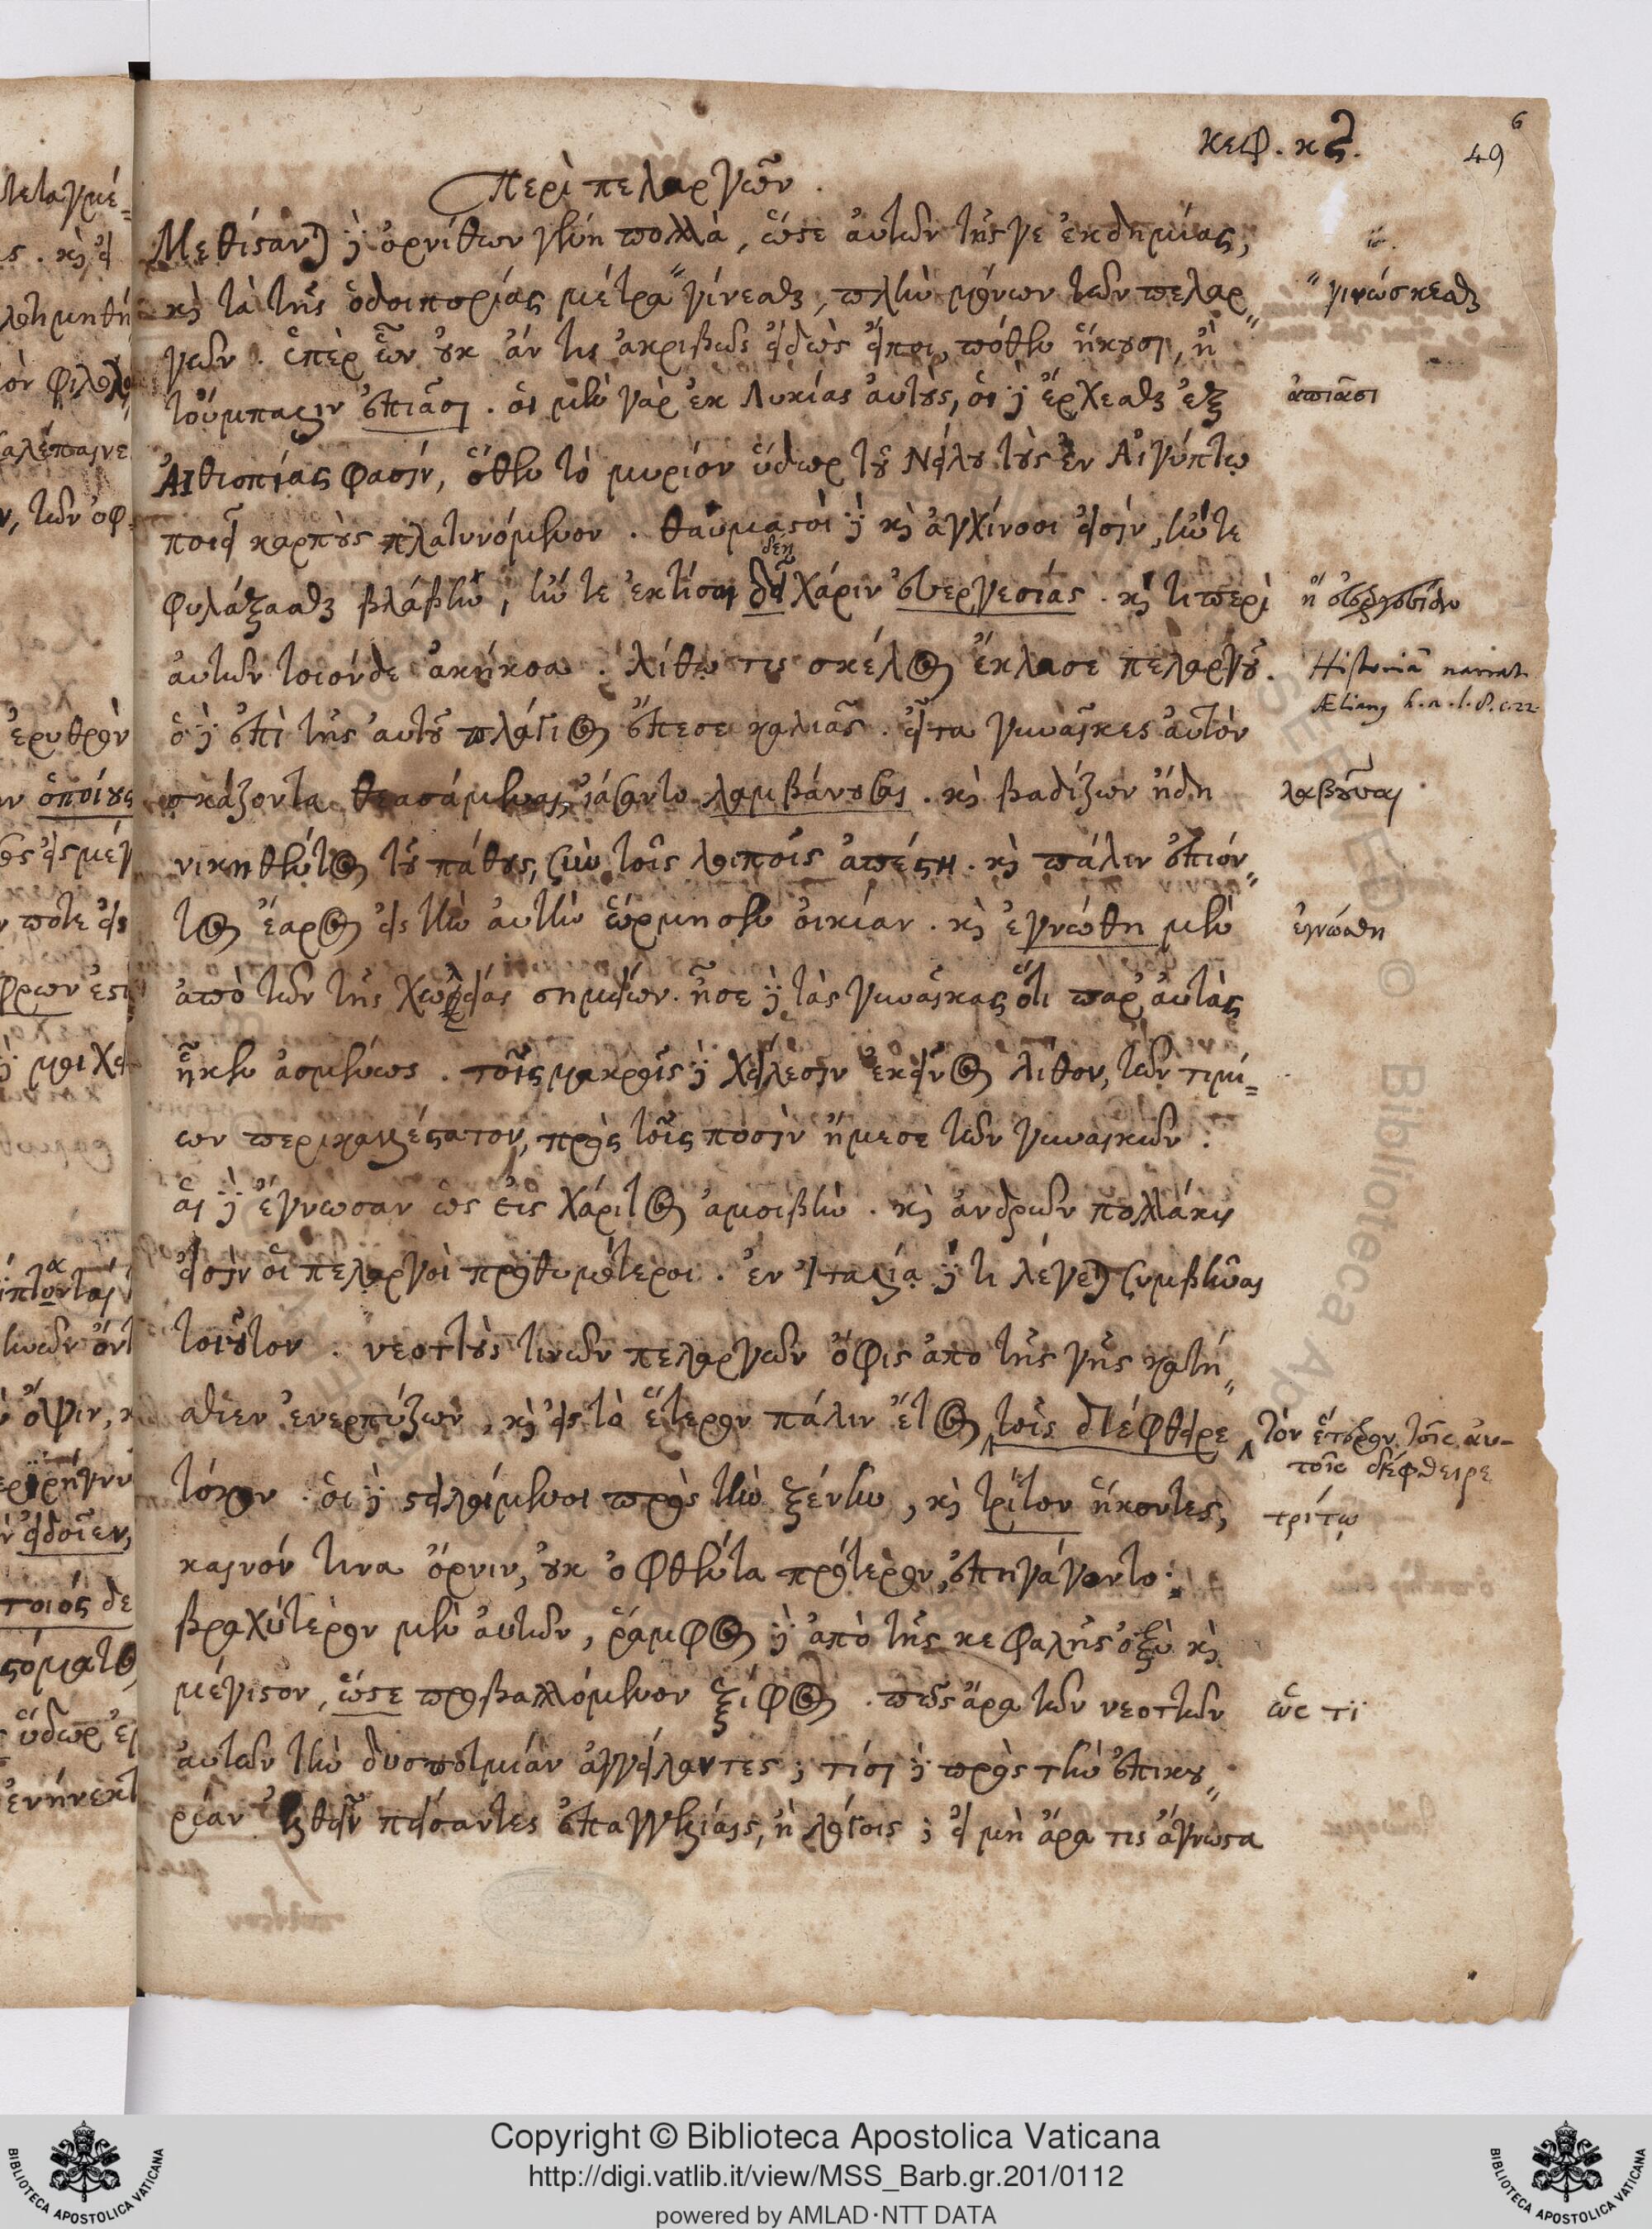 κεφ. κϛ.
6
49
Περὶ πελαργῶν.
Μεθίσαντ(αι) δὲ ὀρνίθων γένη πολλὰ, ὥστε αὐτῶν τῆς γε ἐκδημίας,
καὶ τὰ τῆς ὁδοιπορίας μέτρα γίνεσθαι, πλὴν μόνων τῶν πελαρ
γινώσκεσθαι
γῶν. ὑπὲρ ὧν οὐκ ἄν τις ἀκριβῶς εἰδὼς εἴποι, πόθεν ἥκουσι, ἢ
τοὔμπαλιν ἐπιᾶσι. οἱ μὲν γὰρ ἐκ Λυκίας αὐτοὺς, οἱ δὲ ἔρχεσθαι ἐξ
ἀπιᾶσι
Αἰθιοπίας φασὶν, ὅθεν τὸ μυρίον ὕδωρ τοῦ Νείλου τοὺς ἐν Αἰγύπτῳ
ποιεῖ καρποὺς πλατυνόμενον. θαυμαστοὶ δὲ καὶ ἀγχίνοοι εἰσὶν, τήν τε
φυλάξασθαι βλάβην, τήν τε ἐκτίσαι χάριν εὐεργεσίας. καί τι περὶ
αὐτῶν τοιόνδε ἀκήκοα. λίθῳ τις σκέλος ἔκλασε πελαργοῦ.
Historiã narrat
ὁ δὲ ἐπὶ τῆς αὐτοῦ πλάγιος ἔπεσε καλιᾶς. εἶτα γυναῖκες αὐτὸν
Ælianꝰ h.n.l.8.c.22
σκάζοντα θεασάμεναι, ἰάσαντο λαμβάνουσαι. καὶ βαδίζων ἤδη
λαβοῦσαι
νικηθέντος τοῦ πάθους, σὺν τοῖς λοιποῖς ἀπέστη. καὶ πάλιν ἐπιόν
τος ἔαρος εἰς τὴν αὐτὴν ὥρμησεν οἰκίαν. καὶ ἐγνώθη μὲν
ἐγνώσθη
ἀπὸ τῶν τῆς χωλείας σημείων. ᾖσε δὲ τὰς γυναῖκας ὅτι παρ' αὐτὰς
ἧκεν ἀσμένως. τοῖς μακροῖς δὲ χείλεσιν ἐκεῖνος λίθον, τῶν τιμί-
ων περικαλλέστατον, πρὸς τοῖς ποσὶν ἤμεσε τῶν γυναικῶν.
αἱ δὲ ἔγνωσαν ὡς εἰς χάριτος ἀμοιβήν. καὶ ἀνδρῶν πολλάκις
εἰσὶν οἱ πελαργοὶ προθυμότεροι. ἐν Ἰταλίᾳ δέ τι λέγετ(αι) συμβῆναι
τοιοῦτον. νεοττοὺς τινῶν πελαργῶν ὄφις ἀπὸ τῆς γῆς κατή
σθιεν ἐνερπύζων, καὶ εἰς τὸ ἕτερον πάλιν ἔτος τοῖς διέφθειρε
τὸν ἕτερον τοῖς αὐ-
τοῖς διέφθειρε
τόκον. οἱ δὲ στελλόμενοι πρὸς τὴν ξένην, καὶ τρίτον ἥκοντες,
τρίτῳ
καινόν τινα ὄρνιν, οὐκ ὀφθέντα πρότερον, ἐπηγάγοντο.
βραχύτερον μὲν αὐτῶν, ῥάμφος δὲ ἀπὸ τῆς κεφαλῆς ὀξὺ καὶ
μέγιστον, ὥστε προβαλλόμενον ξίφος. πῶς ἄρα τῶν νεοττῶν
ὥς τι
αὐτῶν τὴν δυσποτμίαν ἀγγείλαντες; τίσι δὲ πρὸς τὴν ἐπικου
ρίαν ἐλθεῖν πείσαντες ἐπαγγελίαις, ἢ λόγοις; εἰ μὴ ἄρα τις ἄγνωστα
Copyright © Biblioteca Apostolica Vaticana
http://digi.vatlib.it/view/MSS_Barb.gr.201/0112
powered by AMLAD·NTT DATA
BIBLIOTECA APOSTOLICA VATICANA
BIBLIOTECA APOSTOLICA VATICANA